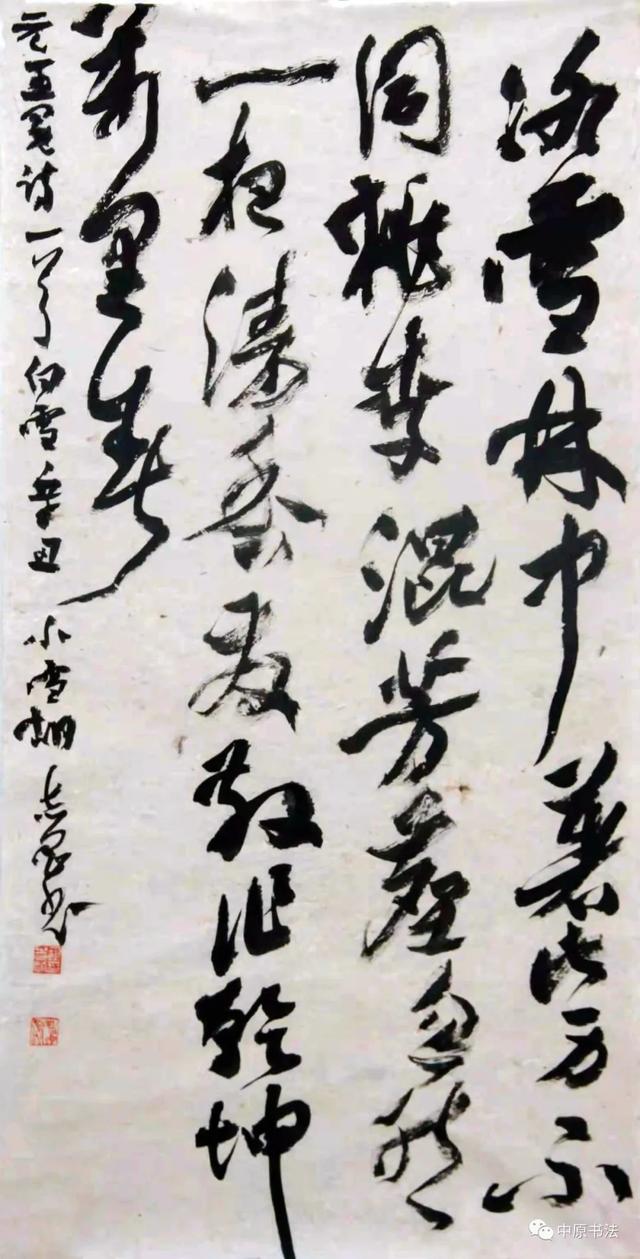 冰雪林中著此身不
同桃李混芳塵忽然
一夜清香发散作乾坤
萬里春
元王冕诗一首白雪辛丑小雪書
中原书法